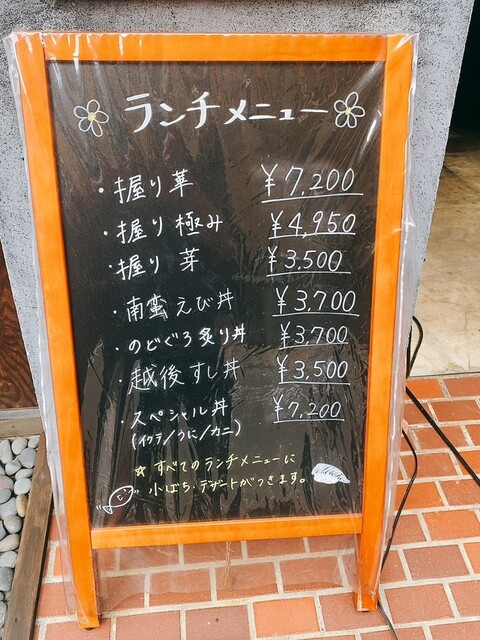 ランチメニュー
・握り華 ¥7,200
・握り極み ¥4,950
・握り芽 ¥3,500
・南蛮えび丼 ¥3,700
・のどぐろ炙り丼 ¥3,700
・越後すし丼 ¥3,500
・スペシャル丼 ¥7,200
(イクラ/うに/カニ)
☆すべてのランチメニューに
小ばち・デザートがつきます。